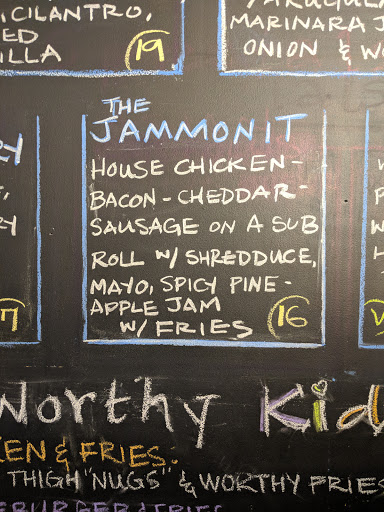 , CILANTRO,
ED
ILLA
19
MARINARA J
ONION & W
THE
JAMMONIT
HOUSE CHICKEN-
BACON - CHEDDAR-
SAUSAGE ON A SUB
ROLL W/ SHREDDUCE,
MAYO, SPICY PINE-
APPLE JAM
W/ FRIES
16
7
Worthy Kid
KEN & FRIES.
THIGH "NUGS" & WORTHY FRIES